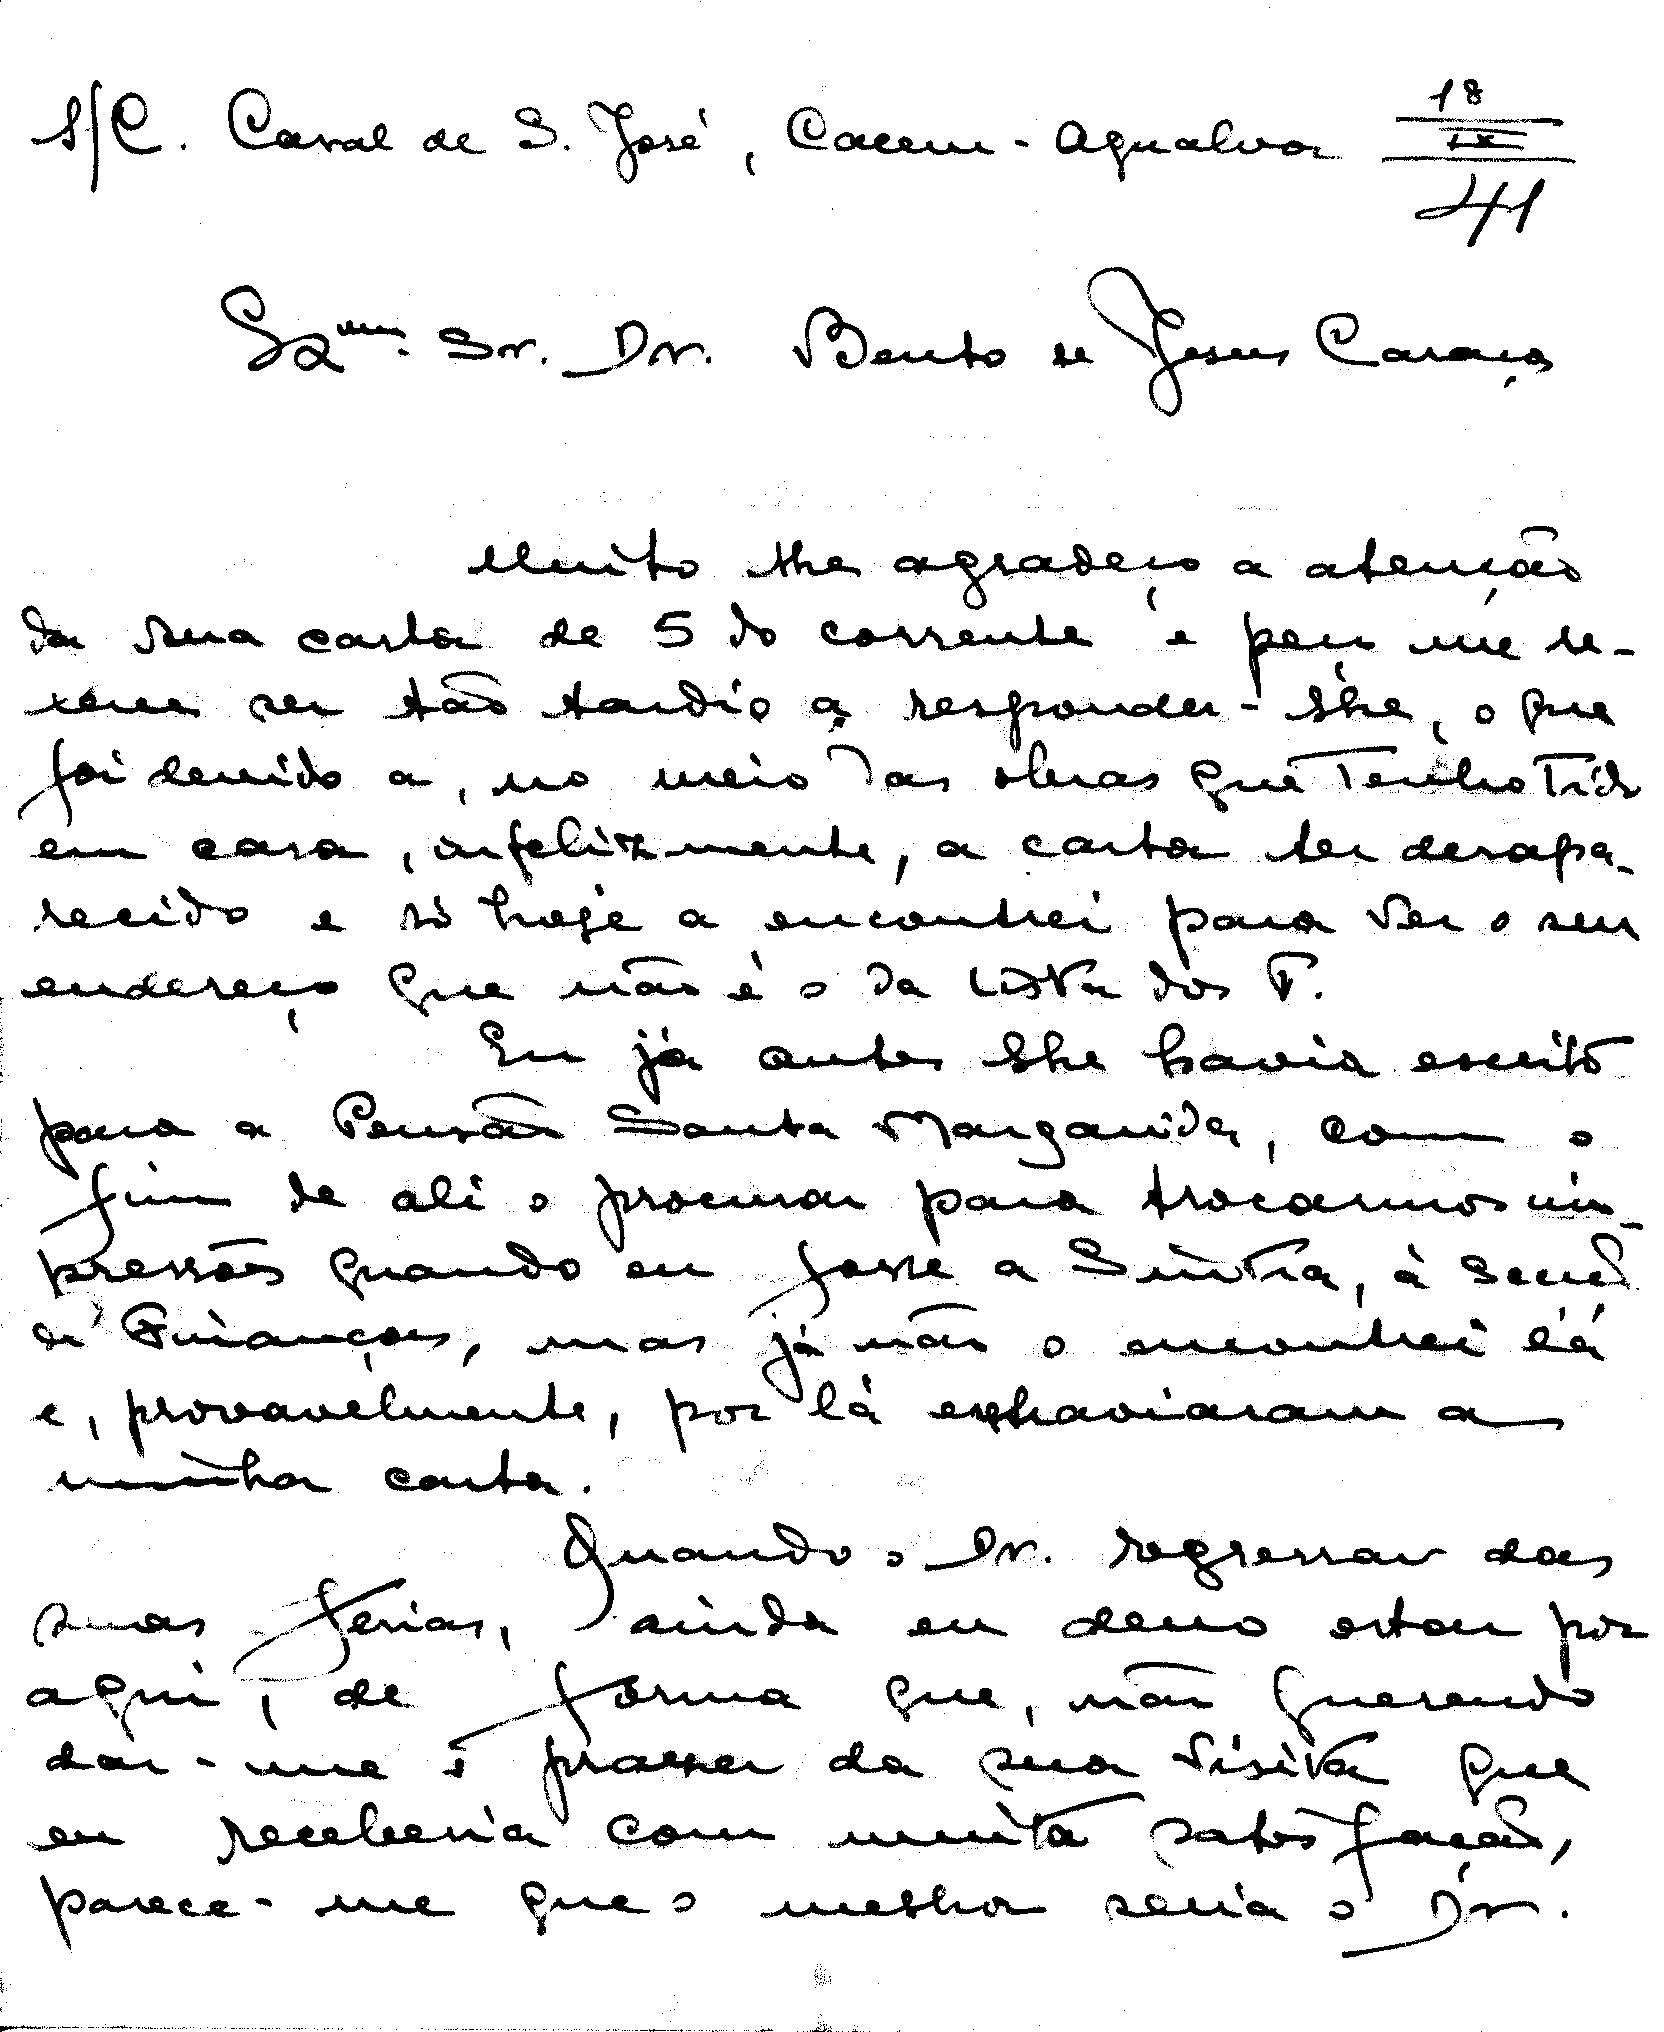 S/C. Casal de S. José, Cacem - Agualva 18/IX/41
Exmo. Sr. Dr. Bento de Jesus Caraça
Muito lhe agradeço a atenção
da sua carta de 5 do corrente e peço me re-
leve ser tão tardio a responder-lhe, o que
foi devido a, no meio das obras que tenho tido
em casa, infelizmente, a carta ter desapa-
recido e só hoje a encontrei para ver o seu
endereço que não é o da Lista dos T.
Eu já antes lhe havia escrito
para a Pensão Santa Margarida, com o
fim de ali o procurar para trocarmos im-
pressões quando eu fosse a Sintra, à Secção
de Finanças, mas já não o encontrei lá
e, provavelmente, por lá exhaviaram a
minha carta.
Quando o Dr. regressar das
suas ferias, ainda eu devo estar por
aqui, de fórma que, não querendo
dar-me o prazer da sua visita que
eu receberia com muita satisfação,
parece-me que o melhor seria o Dr.